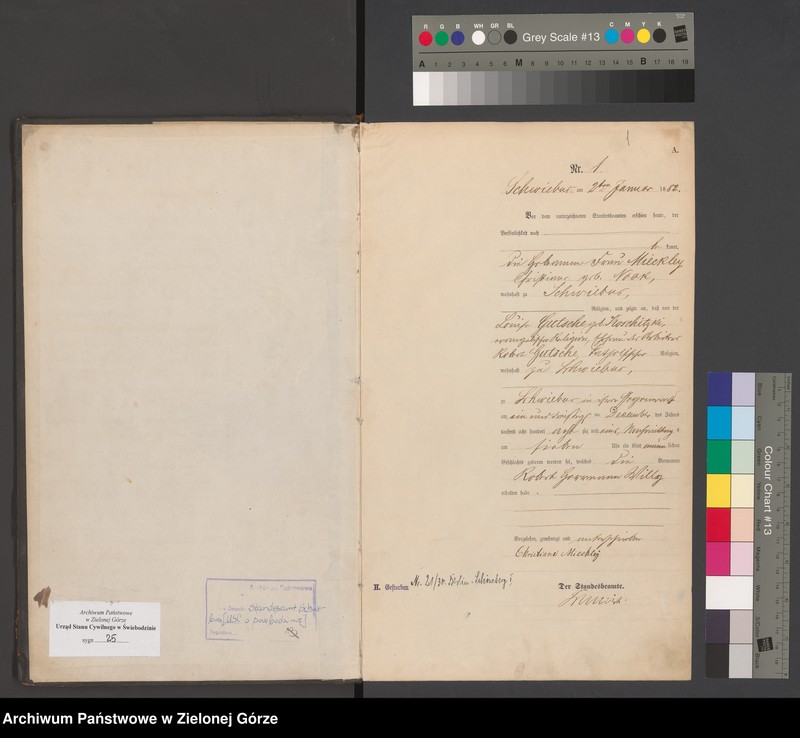 R G B WH GR BL Grey Scale #13 C M Y K
A 1 2 3 4 5 6 M 8 9 10 11 12 13 14 15 B 17 18 19
1
A.
Nr. 1.
Schwiebus, am 2ten Januar 1882.
Vor dem unterzeichneten Standesbeamten erschien heute, der
Persönlichkeit nach
kannt,
die Hebamme Frau Mieckley
Christiane geb. Noak,
wohnhaft zu Schwiebus,
Religion, und zeigte an, daß von der
Louise Gutsche geb. Koschitzki,
evangelischer Religion, Ehefrau des
Robert Gutsche, Religion,
wohnhaft zu Schwiebus,
zu Schwiebus in ihrer Gegenwart
am ein und dreißigsten Dezember des Jahres
tausend acht hundert achtzig und eins, Nachmittags
um sieben Uhr ein Kind männlichen
Geschlechts geboren worden sei, welches die Vornamen
Robert Herrmann Willy
erhalten habe.
Vorgelesen, genehmigt und unterschrieben
Christiane Mieckley
Der Standesbeamte.
H. Gestorben N. 21/34. Berlin-Schöneberg I
Archiwum Państwowe
w Zielonej Górze
Urząd Stanu Cywilnego w Świebodzinie
sygn 25
Archiwum Państwowe
Zespół Standesamt
Colour Chart #13
Blue
Cyan
Green
Yellow
Red
Magenta
White
3/Color
Black
Archiwum Państwowe w Zielonej Górze